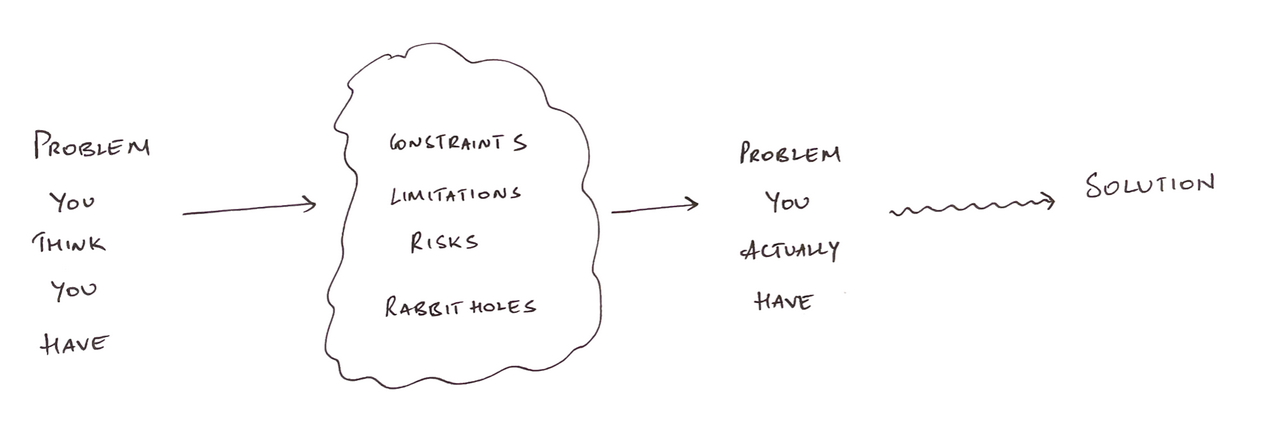 PROBLEM
YOU
THINK
YOU
HAVE
CONSTRAINTS
LIMITATIONS
RISKS
RABBIT HOLES
PROBLEM
YOU
ACTUALLY
HAVE
SOLUTION